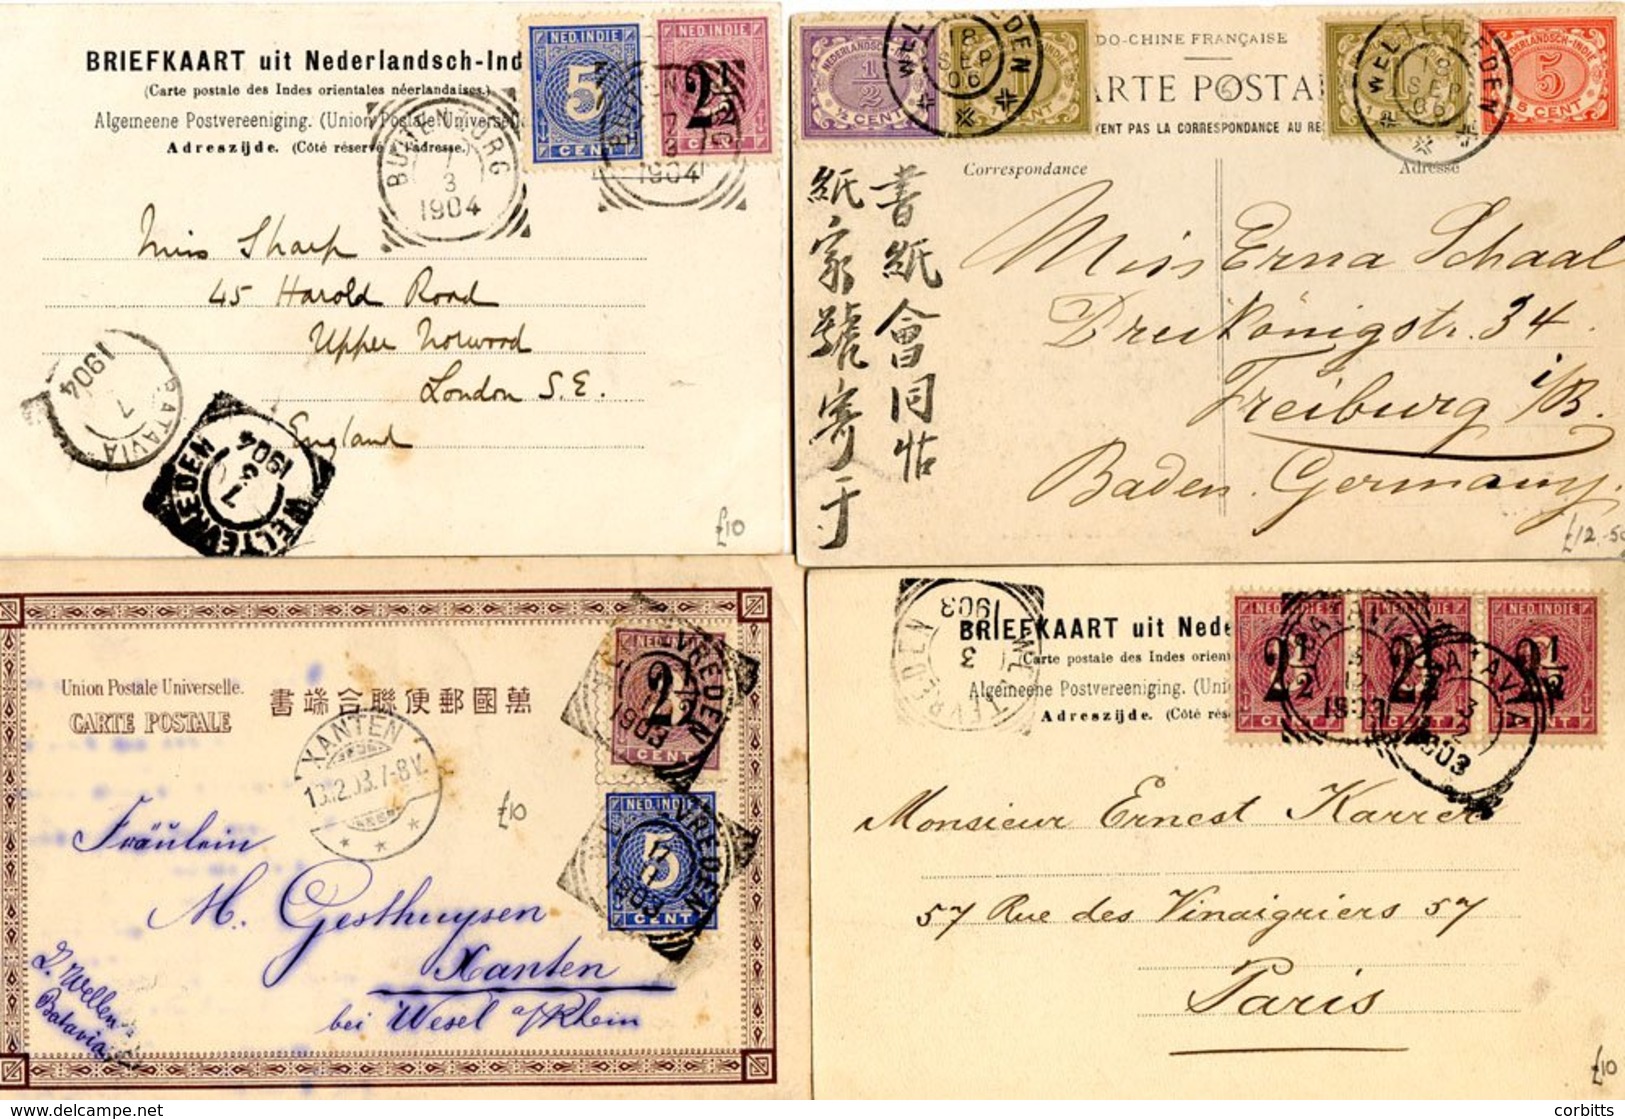 BRIEFKAART uit Nederlandsch-Ind
(Carte postale des Indes orientales néerlandaises.)
Algemeene Postvereeniging. (Union Postale Universelle
Adreszijde. (Côté réservé à l'adresse.)
NED. INDIE
5
CENT
NED. INDIE
2½
CENT
BUITENZORG
7
3
1904
7
3
1904
Miss Sharp
45 Harold Road
Upper Norwood
London S.E.
England
BATAVIA
7
1904
WELTEVREDEN
7
3
1904
£10
NEDERLANDSCH-INDIË
½
½ CENT
1 CENT
WELTEVREDEN
18
SEP
06
WELTEVREDEN
18
SEP
06
NEDERLANDSCH-INDIË
5
5 CENT
DO-CHINE FRANÇAISE
ARTE POSTA
ENT PAS LA CORRESPONDANCE AU RE
Correspondance
Adresse
書紙會同帖
紙家號寄于
Miss Erna Schaal
Dreikönigstr. 34
Freiburg i/B.
Baden. Germany.
£12.50
Union Postale Universelle.
CARTE POSTALE
萬國郵便聯合端書
XANTEN
13.2.03.7-8V.
NED. INDIE
2½
CENT
1903
NED. INDIE
5
CENT
17
1
1903
£10
Fräulein
M. Gesthuysen
Xanten
bei Wesel a/Rhein
Batavia
BRIEFKAART uit Nede
(Carte postale des Indes orien
Algemeene Postvereeniging. (Uni
Adreszijde. (Côté rése
3
1903
NED. INDIE
2½
CENT
NED. INDIE
2½
CENT
NED. INDIE
2½
CENT
BATAVIA
1903
BATAVIA
3
2
1903
Monsieur Ernest Karrer
57 Rue des Vinaigriers 57
Paris
£10
corbitts